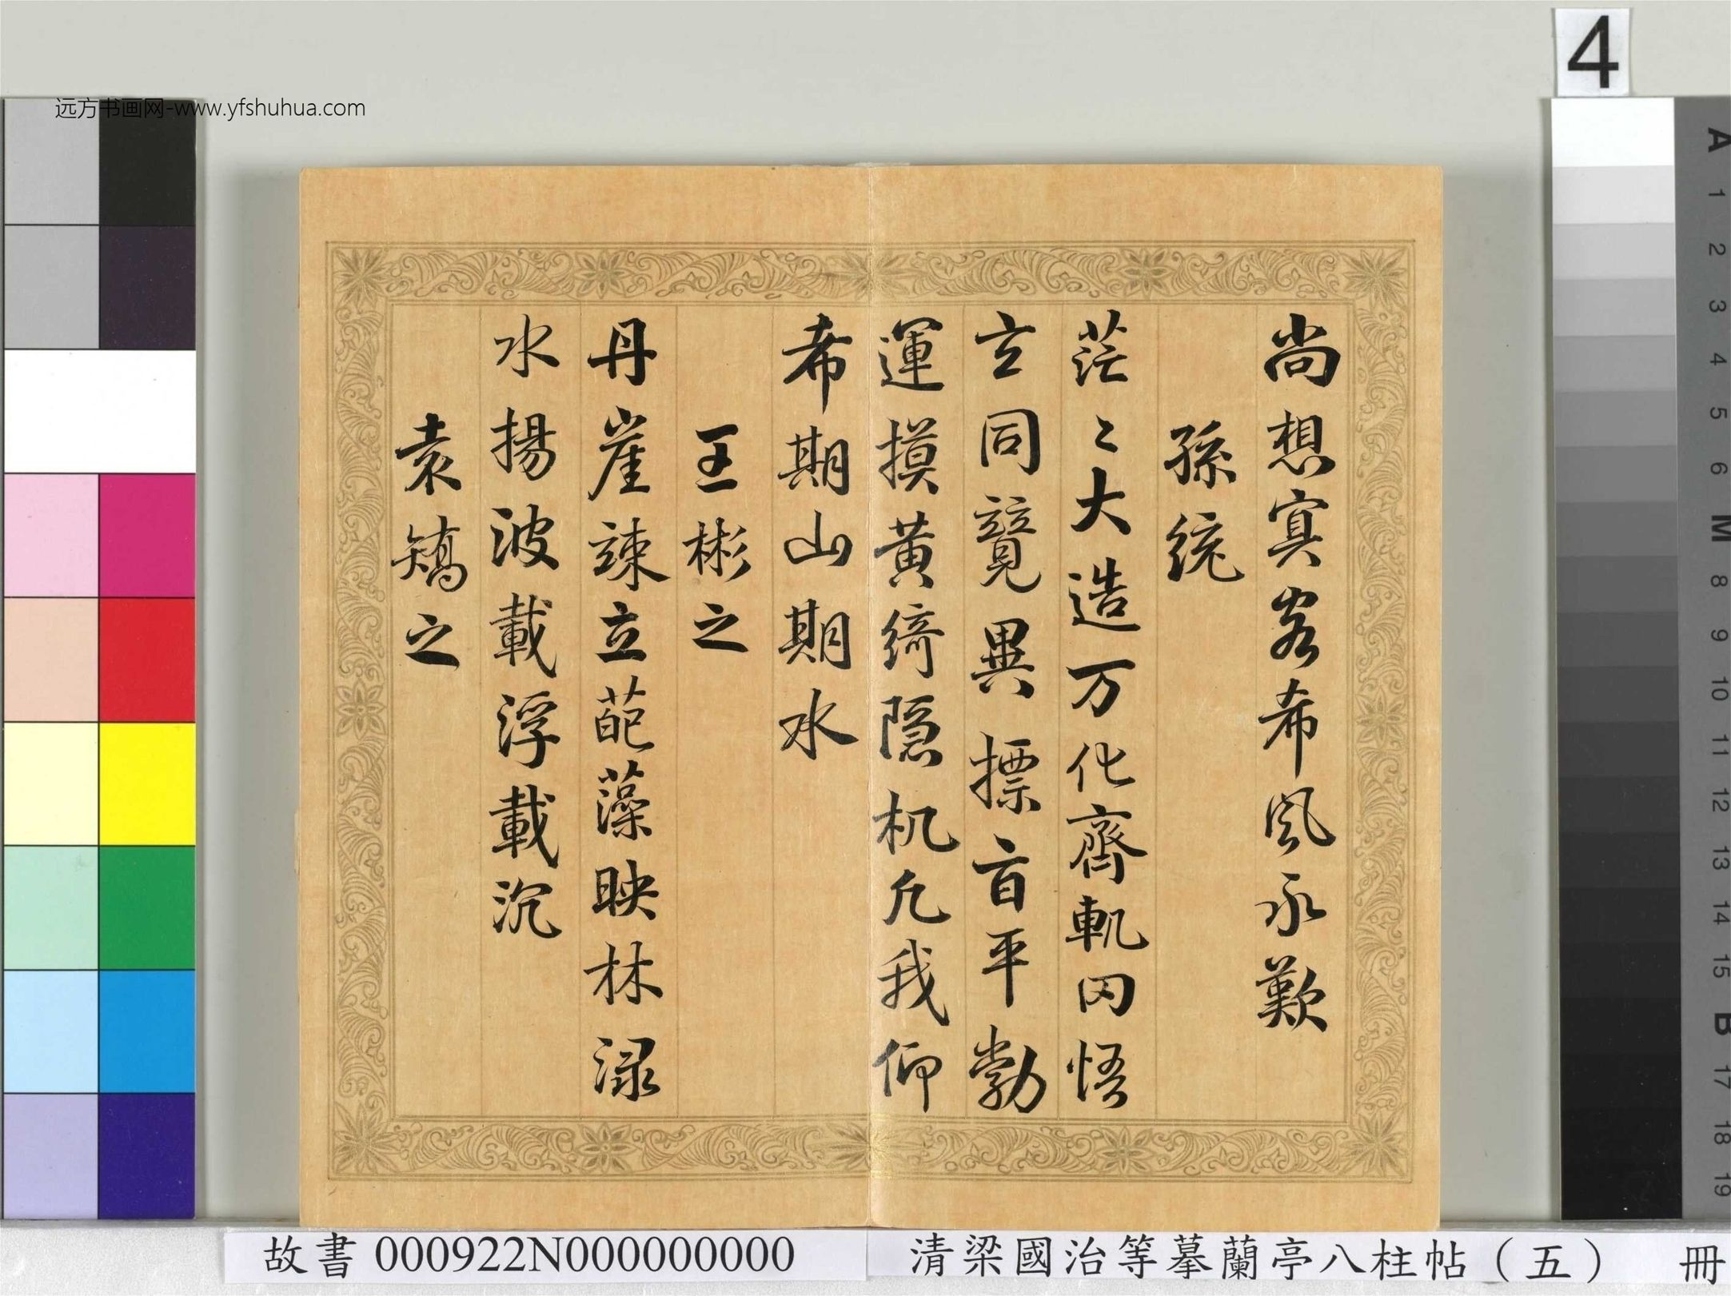 远方书画网-www.yfshuhua.com
4
尚想冥客希風永歎
孫統
茫〻大造万化齊軌冈悟
玄同競異摽旨平勃
運摸黄綺隠机凡我仰
希期山期水
王彬之
丹崖竦立葩藻映林渌
水揚波載浮載沉
袁矯之
A 1 2 3 4 5 6 M 8 9 10 11 12 13 14 15 B 17 18 19
故書 000922N000000000
清梁國治等摹蘭亭八柱帖（五） 冊